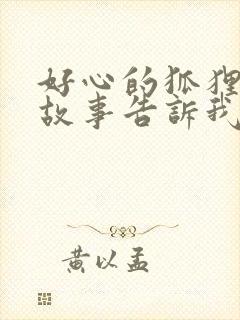 好心的狐狸
故事告訴我
黃以孟